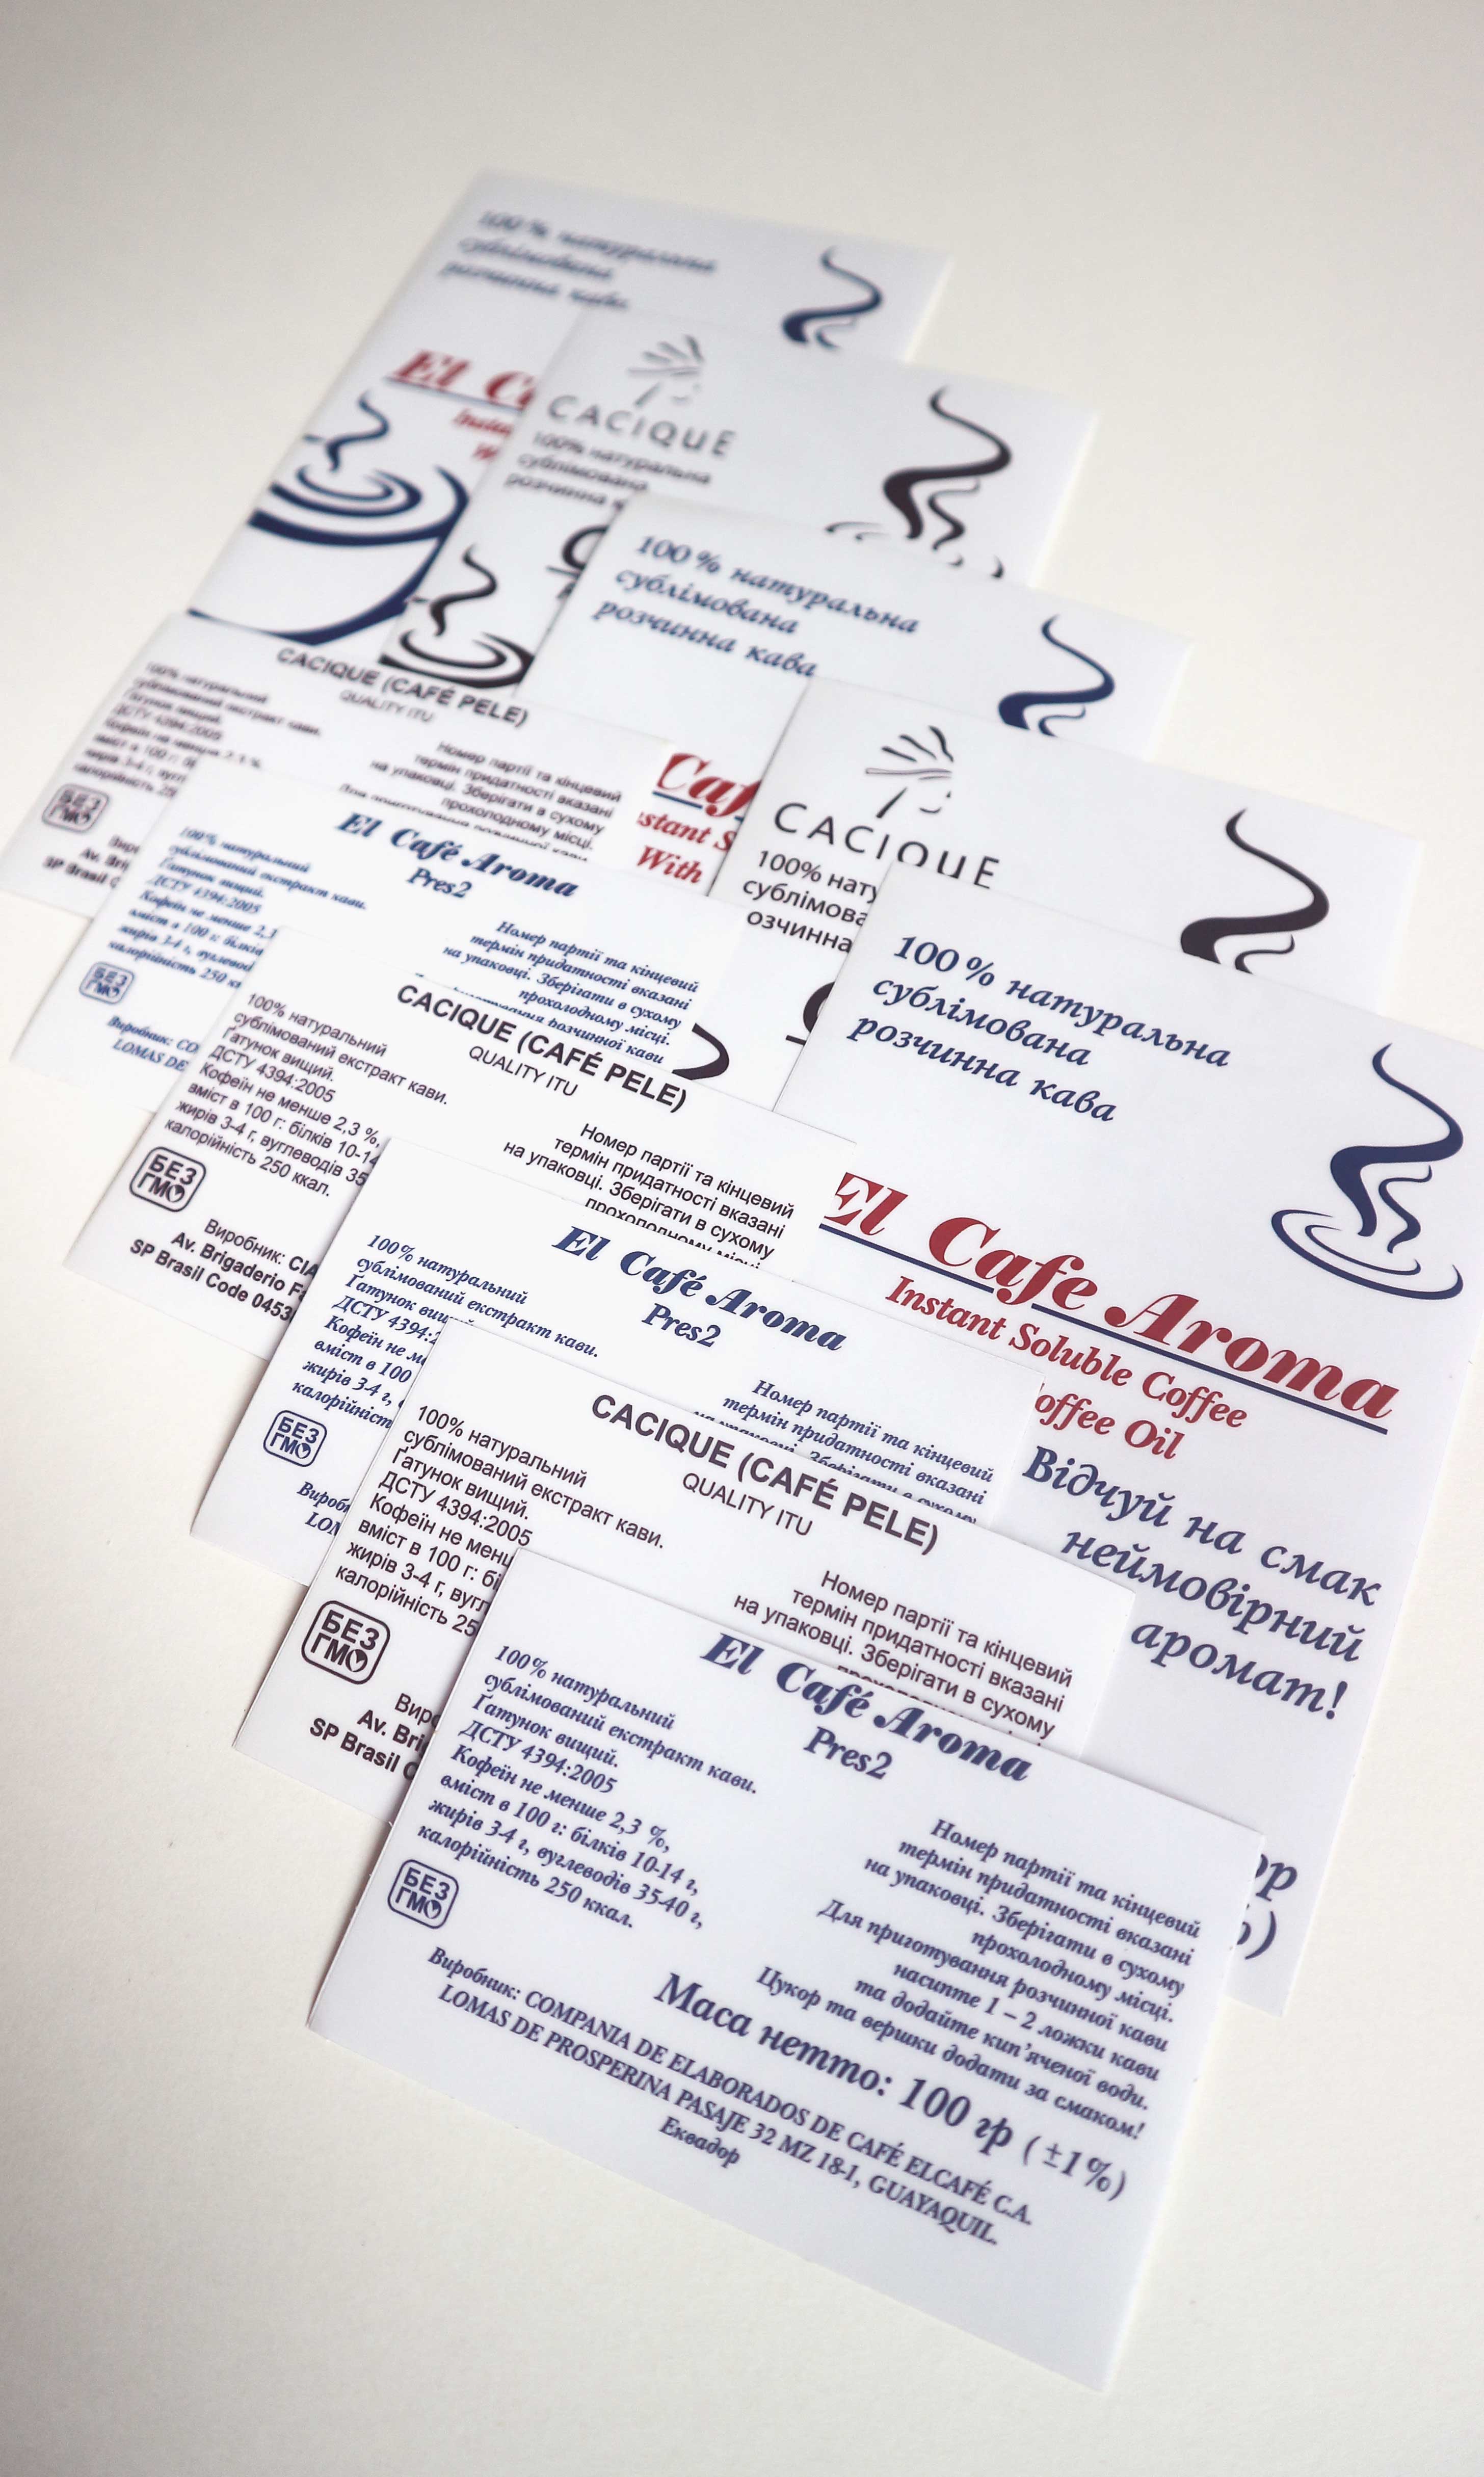 100% натуральна
сублімована
розчинна кава
El C
CACIQUE
100% натуральна
сублімована
розчинна
100% натуральна
сублімована
розчинна кава
Caf
stant S
With
CACIQUE
100% нату
сублімова
озчинна
100% натуральна
сублімована
розчинна кава
El Cafe Aroma
Instant Soluble Coffee
offee Oil
Відчуй на смак
неймовірний
аромат!
ор
)
CACIQUE (CAFÉ PELE)
QUALITY ITU
100% натуральний
сублімований екстракт кави.
Ґатунок вищий.
ДСТУ 4394:2005
БЕЗ
ГМО
Номер партії та кінцевий
термін придатності вказані
на упаковці. Зберігати в сухому
прохолодному місці.
Av. Bri
SP Brasil C
El Café Aroma
Pres2
100% натуральний
сублімований екстракт кави.
Ґатунок вищий.
ДСТУ 4394:2005
Кофеїн не менше 2,3
вміст в 100 г: білків
жирів 3-4 г, вуглевод
калорійність 250 кк
БЕЗ
ГМО
Номер партії та кінцевий
термін придатності вказані
на упаковці. Зберігати в сухому
прохолодному місці.
розчинної кави
Виробник: CO
LOMAS DE
CACIQUE (CAFÉ PELE)
QUALITY ITU
100% натуральний
сублімований екстракт кави.
Ґатунок вищий.
ДСТУ 4394:2005
Кофеїн не менше 2,3 %,
вміст в 100 г: білків 10-14
жирів 3-4 г, вуглеводів 35
калорійність 250 ккал.
БЕЗ
ГМО
Номер партії та кінцевий
термін придатності вказані
на упаковці. Зберігати в сухому
прохолодному місці
Виробник: CIA
Av. Brigaderio Fa
SP Brasil Code 0453
El Café Aroma
Pres2
100% натуральний
сублімований екстракт кави.
Ґатунок вищ
ДСТУ 4394:2
Кофеїн не ме
вміст в 100
жирів 3-4 г,
калорійніст
БЕЗ
ГМО
Номер партії та кінцевий
термін придатності вказані
на упаковці. Зберігати в сухому
Вироб
LOM
CACIQUE (CAFÉ PELE)
QUALITY ITU
100% натуральний
сублімований екстракт кави.
Ґатунок вищий.
ДСТУ 4394:2005
Кофеїн не менш
вміст в 100 г: бі
жирів 3-4 г, вугл
калорійність 25
БЕЗ
ГМО
Номер партії та кінцевий
термін придатності вказані
на упаковці. Зберігати в сухому
Виро
Av. Bri
SP Brasil C
El Café Aroma
Pres2
100% натуральний
сублімований екстракт кави.
Ґатунок вищий.
ДСТУ 4394:2005
Кофеїн не менше 2,3 %,
вміст в 100 г: білків 10-14 г,
жирів 3-4 г, вуглеводів 35-40 г,
калорійність 250 ккал.
БЕЗ
ГМО
Номер партії та кінцевий
термін придатності вказані
на упаковці. Зберігати в сухому
прохолодному місці.
Для приготування розчинної кави
насипте 1 – 2 ложки кави
та додайте кип’яченої води.
Цукор та вершки додати за смаком!
Маса нетто: 100 гр (±1%)
Виробник: COMPANIA DE ELABORADOS DE CAFÉ ELCAFÉ C.A.
LOMAS DE PROSPERINA PASAJE 32 MZ 18-1, GUAYAQUIL.
Еквадор